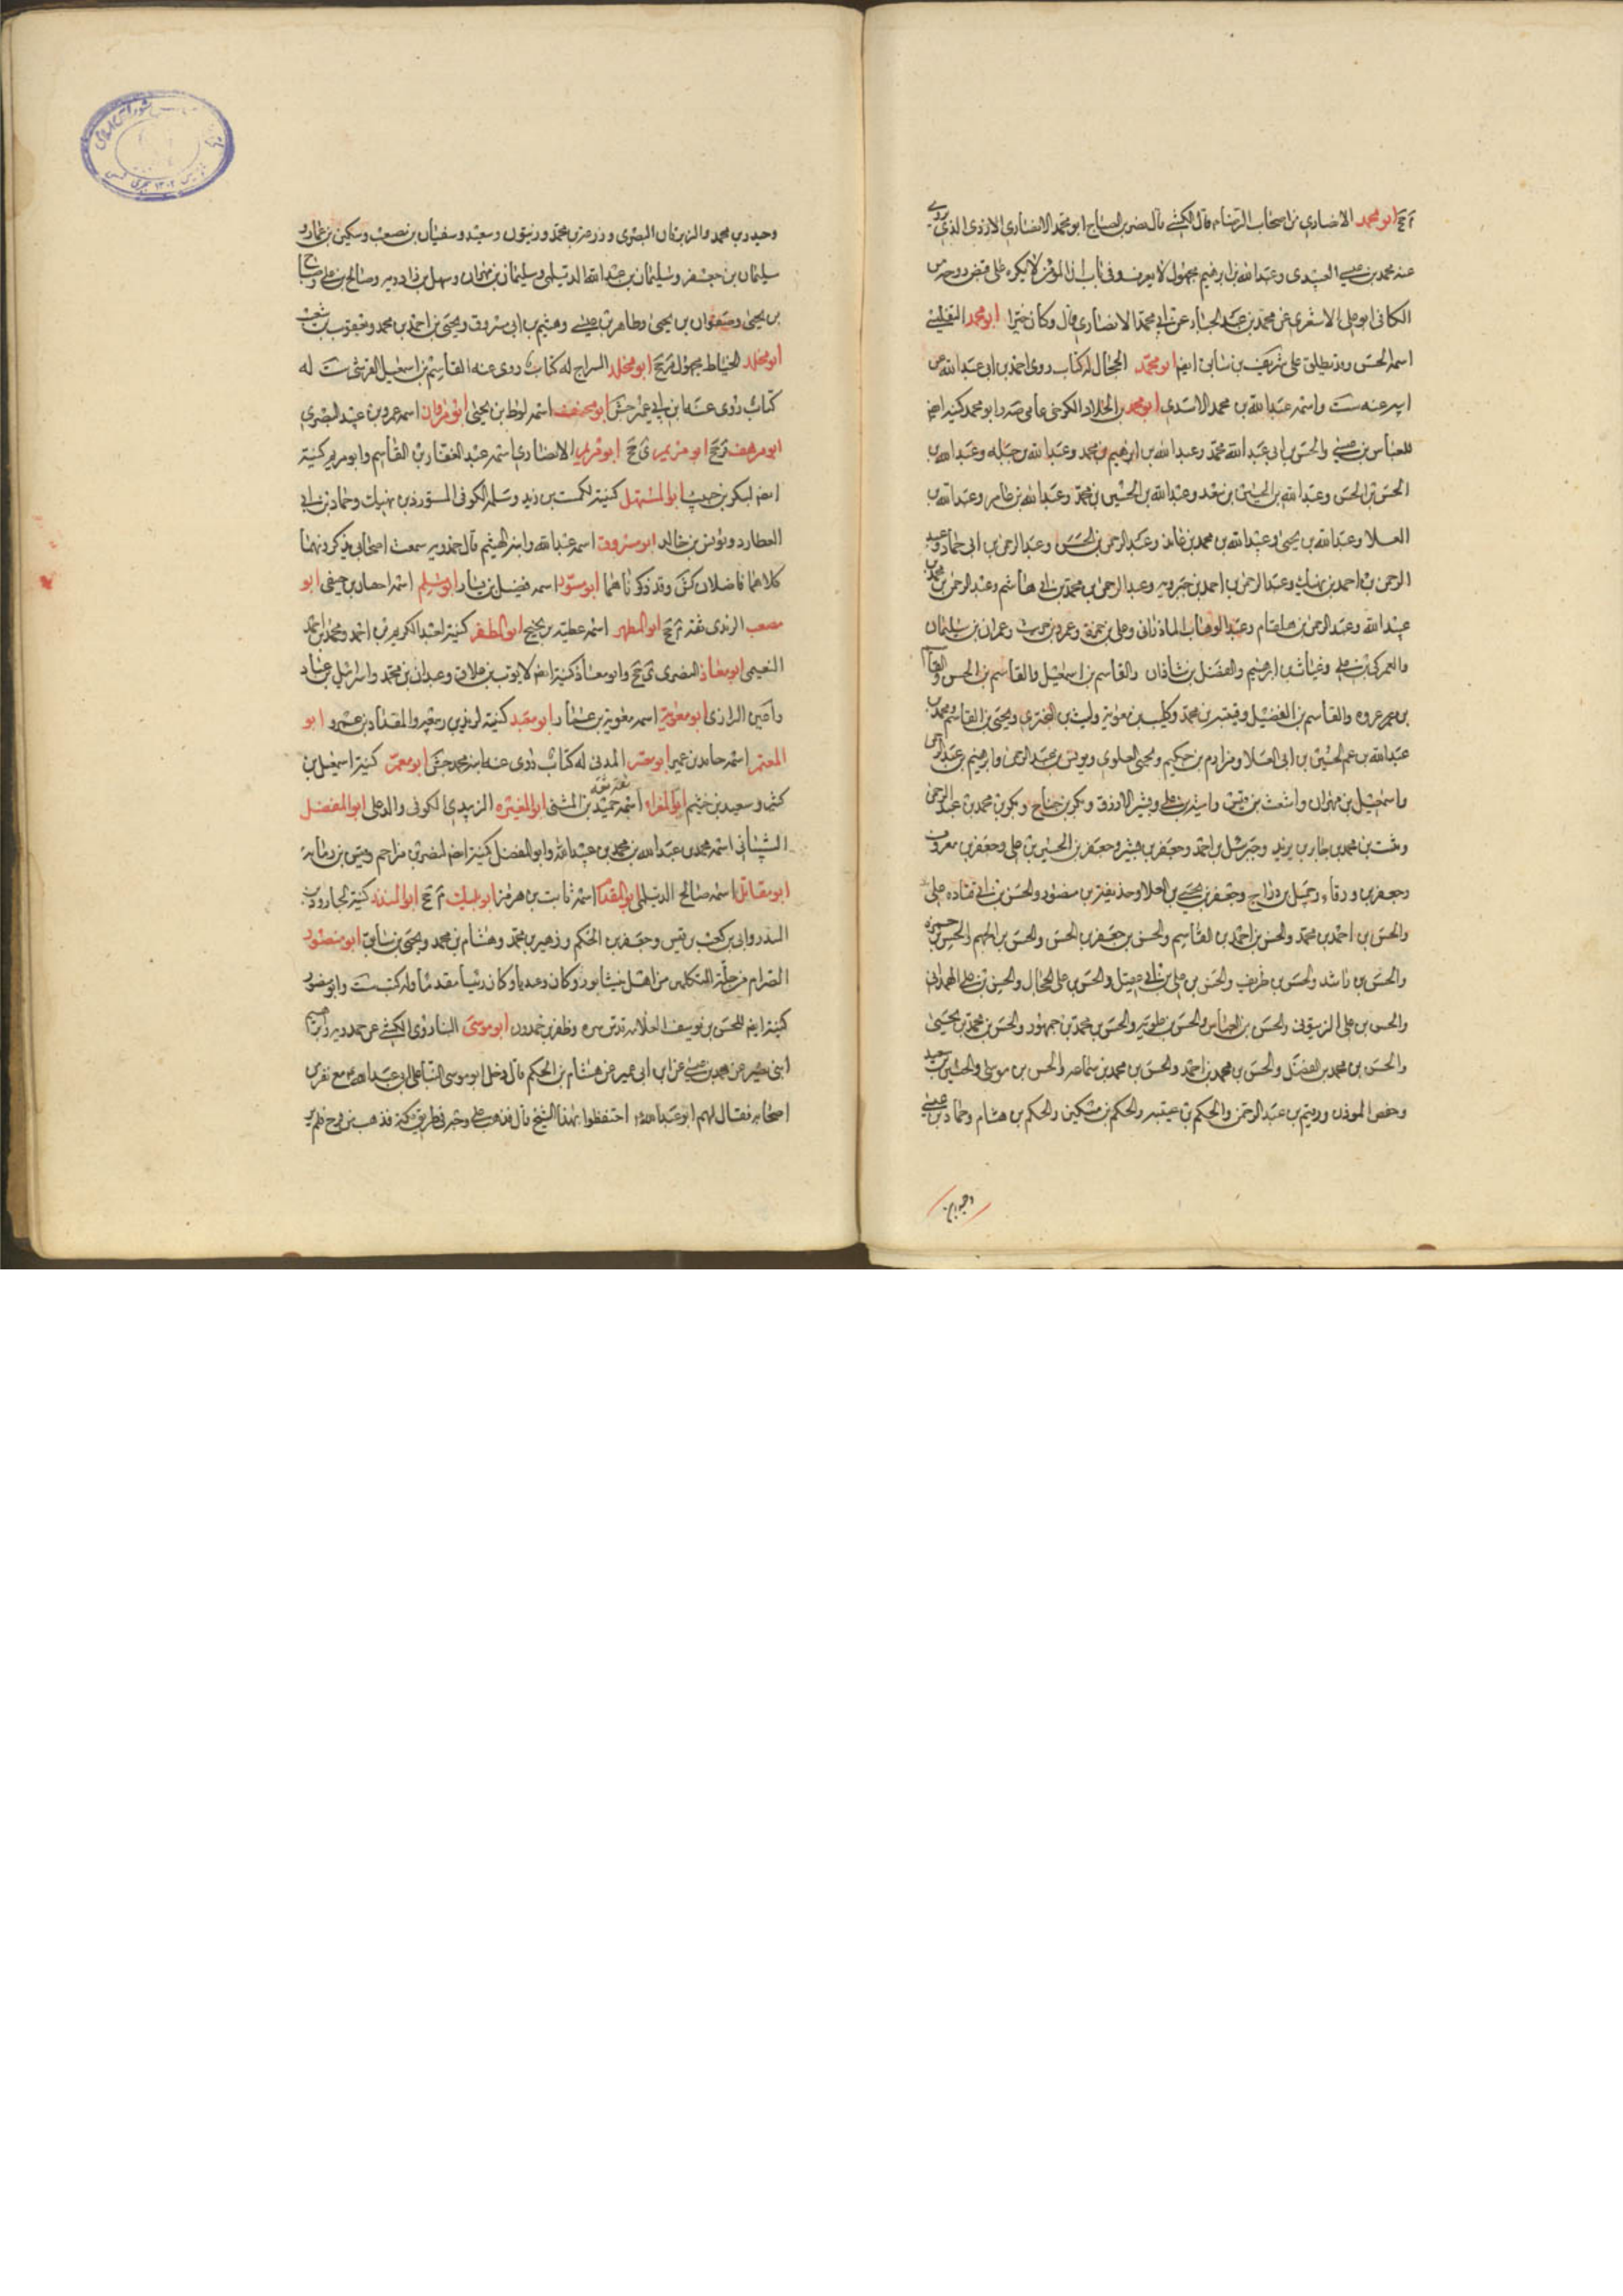 ابو محمد الانصاري من اصحاب الرضا ع قال الكشي قال نصر بن الصباح ابو محمد الانصاري الذي روى
عنه محمد بن عيسى العبيدي وعبد الله بن ابرهيم مجهول لا يعرف وفي باب ان المؤمن لا يكره على قبض روحه من
الكافي ابو علي الاشعري عن محمد بن عبد الجبار عن ابي محمد الانصاري قال وكان خيرا ابو محمد التفليسي
اسمه الحسن وقد يطلق على شريف بن سابق ايضا ابو محمد الحجال له كتاب روى احمد بن ابي عبد الله عن
ابيه عنه ست واسمه عبد الله بن محمد الاسدي ابو محمد بن الكوفي عامي وابو محمد كنية ايضا
للعباس بن عيسى والحسن بن ابي عبد الله محمد وعبد الله بن ابرهيم بن محمد وعبد الله بن جبله وعبد الله بن
الحسن بن الحسن وعبد الله بن الحسين بن سعد وعبد الله بن الحسين بن محمد وعبد الله بن عامر وعبد الله بن
العلا وعبد الله بن يحيى وعبد الله بن محمد بن وعبد الرحمن بن الحسن وعبد الرحمن بن ابي حماد وعبد
الرحمن بن احمد بن نهيك وعبد الرحمن بن احمد بن جبرويه وعبد الرحمن بن محمد بن ابي هاشم وعبد الرحمن بن محمد بن
عبيد الله وعبد الرحمن بن هلقام وعبد الوهاب الماذراني وعلي بن حمزة وعمرو بن حريث وعمران بن سليمان
والعمركي بن علي وغياث بن ابرهيم والفضل بن شاذان والقاسم بن اسمعيل والقاسم بن الحسن والقاسم
بن عروه والقاسم بن الفضيل وقتيبة بن محمد وكليب بن معوية وليث بن البختري ويحيى بن القاسم ومحمد بن
عبد الله بن عم الحسين بن ابي العلا ومرازم بن حكيم ويحيى العلوي ويونس بن عبد الرحمن وابرهيم بن عبد الرحمن
واسمعيل بن مهران واشعث بن واسيد بن علي وبشر الازرق وبكر بن جناح وبكر بن محمد بن عبد الرحمن
بن محمد بن يزيد وجبرئيل بن احمد وجعفر بن بشير وجعفر بن الحسين بن علي وجعفر بن معروف
وجعفر بن ورقاء وجميل بن دراج وجعفر بن يحيى بن العلا وحذيفة بن منصور والحسن بن ابي قتاده علي
والحسن بن احمد بن محمد والحسن بن احمد بن القاسم والحسن بن جعفر بن الحسن والحسن بن الجهم والحسن بن حمزه
والحسن بن راشد والحسن بن ظريف والحسن بن علي بن ابي عقيل والحسن بن علي الحجال والحسن بن علي الهمداني
والحسن بن علي الزيتوني والحسن بن العباس والحسن بن علويه والحسن بن محمد بن جمهور والحسن بن محمد بن يحيى
والحسن بن محمد بن الفضل والحسن بن محمد بن احمد والحسن بن محمد بن سماعه والحسن بن موسى والحسين بن سعيد
وحفص الموذن وربيع بن عبد الرحمن والحكم بن عتيبه والحكم بن مسكين والحكم بن هشام وحماد بن عيسى
وحيدر بن
وحيدر بن محمد والزبرقان البصري وزرعة بن محمد وزيتون وسعيد وسفيان بن مصعب وسكين بن عمار و
سليمان بن جعفر وسليمان بن عبد الله الديلمي وسليمان بن مهران وسهل بن زادويه وصالح بن علي وصباح
بن يحيى وصفوان بن يحيى وطاهر بن عيسى وهيثم بن ابي مسروق ويحيى بن احمد بن محمد ويعقوب بن شعيب
ابو مخلد الخياط مجهول ابو مخلد السراج له كتاب روى عنه القاسم بن اسمعيل القرشي ست له
كتاب روى عنه ابن ابي عمير جش ابو مخنف اسمه لوط بن يحيى ابو مروان اسمه عمرو بن عبيد البصري
ابو مرهف ابو مريم ابو مريم الانصاري اسمه عبد الغفار بن القاسم وابو مريم كنية
ايضا لبكر بن حبيب ابو المستهل كنية لكميت بن زيد وسلمه الكوفي المستورد بن نهيك وحماد بن ابي
العطارد ويونس بن خالد ابو مسروق اسمه عبد الله وابنه الهيثم قال حمدويه سمعت اصحابي يذكرونهما
كلاهما فاضلان كش وقد ذكرناهما ابو مسور اسمه فضيل بن يسار ابو مسلم اسمه اهبان بن صيفي ابو
مصعب الزيدي ثقة ابو المطهر اسمه عطية بن نجيح ابو المظفر كنية لعبد الكريم بن احمد ومحمد بن احمد
النعيمي ابو معاذ البصري وابو معاذ كنية ايضا لايوب بن علاق وعبدان بن محمد واسرائيل بن عباد
وامين الرازي ابو معوية اسمه معوية بن عمار ابو معبد كنية لرزين بن ربيعه والمقداد بن عمرو ابو
المعتمر اسمه حامد بن عمير ابو معشر المدني له كتاب روى عنه ابنه محمد جش ابو معمر كنية اسمعيل بن
كثير وسعيد بن خثيم ابو المغرا اسمه حميد بن المثنى ثقة ثقة ابو المغيره الزبيدي الكوفي والد علي ابو المفضل
الشيباني اسمه محمد بن عبد الله بن محمد بن عبيد الله وابو المفضل كنية ايضا لنصر بن مزاحم وقيس بن رمانه
ابو مقاتل اسمه صالح الديلمي ابو المقدام اسمه ثابت بن هرمز ابو مليك ابو المنذر كنية لجارود بن
المنذر وابي بن كعب بن قيس وجعفر بن الحكم وزهير بن محمد وهشام بن محمد ويحيى بن سابق ابو منصور
الصرام من جلة المتكلمين من اهل نيشابور وكان وعيديا وكان رئيسا مقدما وله كتب ست وابو منصور
كنية ايضا للحسن بن يوسف العلامه قدس سره وظفر بن حمدون ابو موسى البنا روى الكشي عن حمدويه وابرهيم
ابني نصير عن محمد بن عيسى عن ابن ابي عمير عن هشام بن الحكم قال دخل ابو موسى البنا على ابي عبد الله ع مع نفر من
اصحابه فقال لهم ابو عبد الله ع احتفظوا بهذا الشيخ قال فذهب على وجهه في طريق مكة فذهب من قزح فلم ير